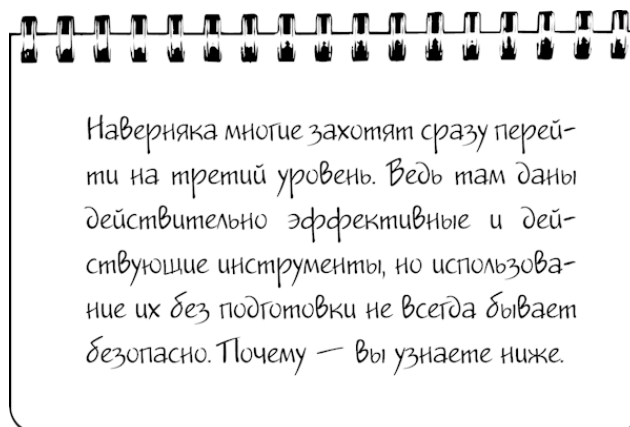 Наверняка многие захотят сразу перей-
ти на третий уровень. Ведь там даны
действительно эффективные и дей-
ствующие инструменты, но использова-
ние их без подготовки не всегда бывает
безопасно. Почему — вы узнаете ниже.